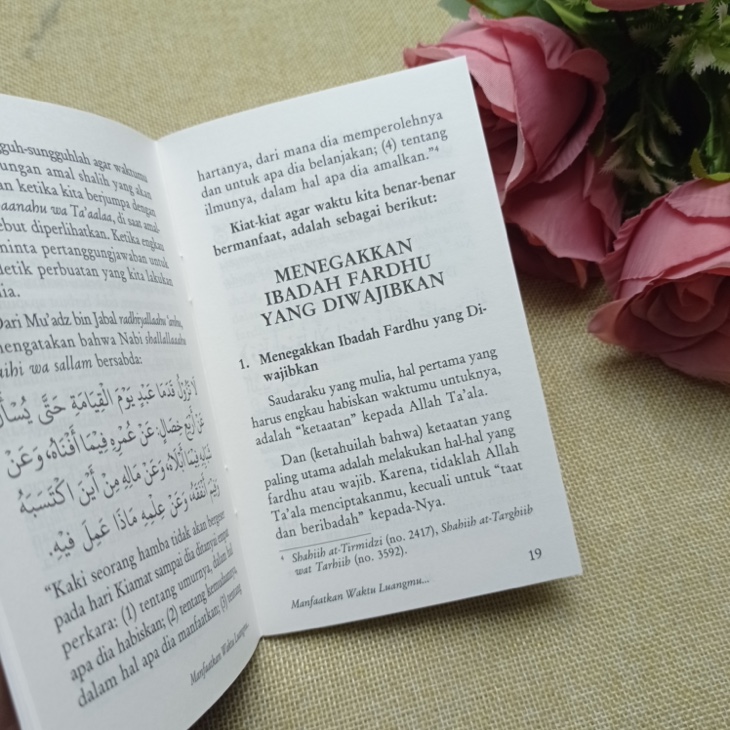 guh-sungguhlah agar waktumu
ungan amal shalih yang akan
an ketika kita berjumpa dengan
aanahu wa Ta'aalaa, di saat amal
ebut diperlihatkan. Ketika engkau
minta pertanggungjawaban untuk
detik perbuatan yang kita lakukan
nia.
Dari Mu'adz bin Jabal radhiyallaahu 'anhu,
engatakan bahwa Nabi shallallaahu
aihi wa sallam bersabda:
لَا تَزُوْلُ قَدَمَا عَبْدٍ يَوْمَ الْقِيَامَةِ حَتَّى يُسْأَلَ
عَنْ أَرْبَعِ خِصَالٍ: عَنْ عُمُرِهِ فِيْمَا أَفْنَاهُ، وَعَنْ
شَبَابِهِ فِيْمَا أَبْلَاهُ، وَعَنْ مَالِهِ مِنْ أَيْنَ اكْتَسَبَهُ
وَفِيْمَ أَنْفَقَهُ، وَعَنْ عِلْمِهِ مَاذَا عَمِلَ فِيْهِ.
"Kaki seorang hamba tidak akan bergeser
pada hari Kiamat sampai dia ditanyai empat
perkara: (1) tentang umurnya, dalam hal
apa dia habiskan; (2) tentang kemudaannya,
dalam hal apa dia manfaatkan; (3) tentang
Manfaatkan Waktu Luangmu...
hartanya, dari mana dia memperolehnya
dan untuk apa dia belanjakan; (4) tentang
ilmunya, dalam hal apa dia amalkan."⁴
Kiat-kiat agar waktu kita benar-benar
bermanfaat, adalah sebagai berikut:
MENEGAKKAN
IBADAH FARDHU
YANG DIWAJIBKAN
1. Menegakkan Ibadah Fardhu yang Di-
wajibkan
Saudaraku yang mulia, hal pertama yang
harus engkau habiskan waktumu untuknya,
adalah "ketaatan" kepada Allah Ta'ala.
Dan (ketahuilah bahwa) ketaatan yang
paling utama adalah melakukan hal-hal yang
fardhu atau wajib. Karena, tidaklah Allah
Ta'ala menciptakanmu, kecuali untuk "taat
dan beribadah" kepada-Nya.
⁴ Shahiih at-Tirmidzi (no. 2417), Shahiih at-Targhiib
wat Tarhiib (no. 3592).
Manfaatkan Waktu Luangmu...
19